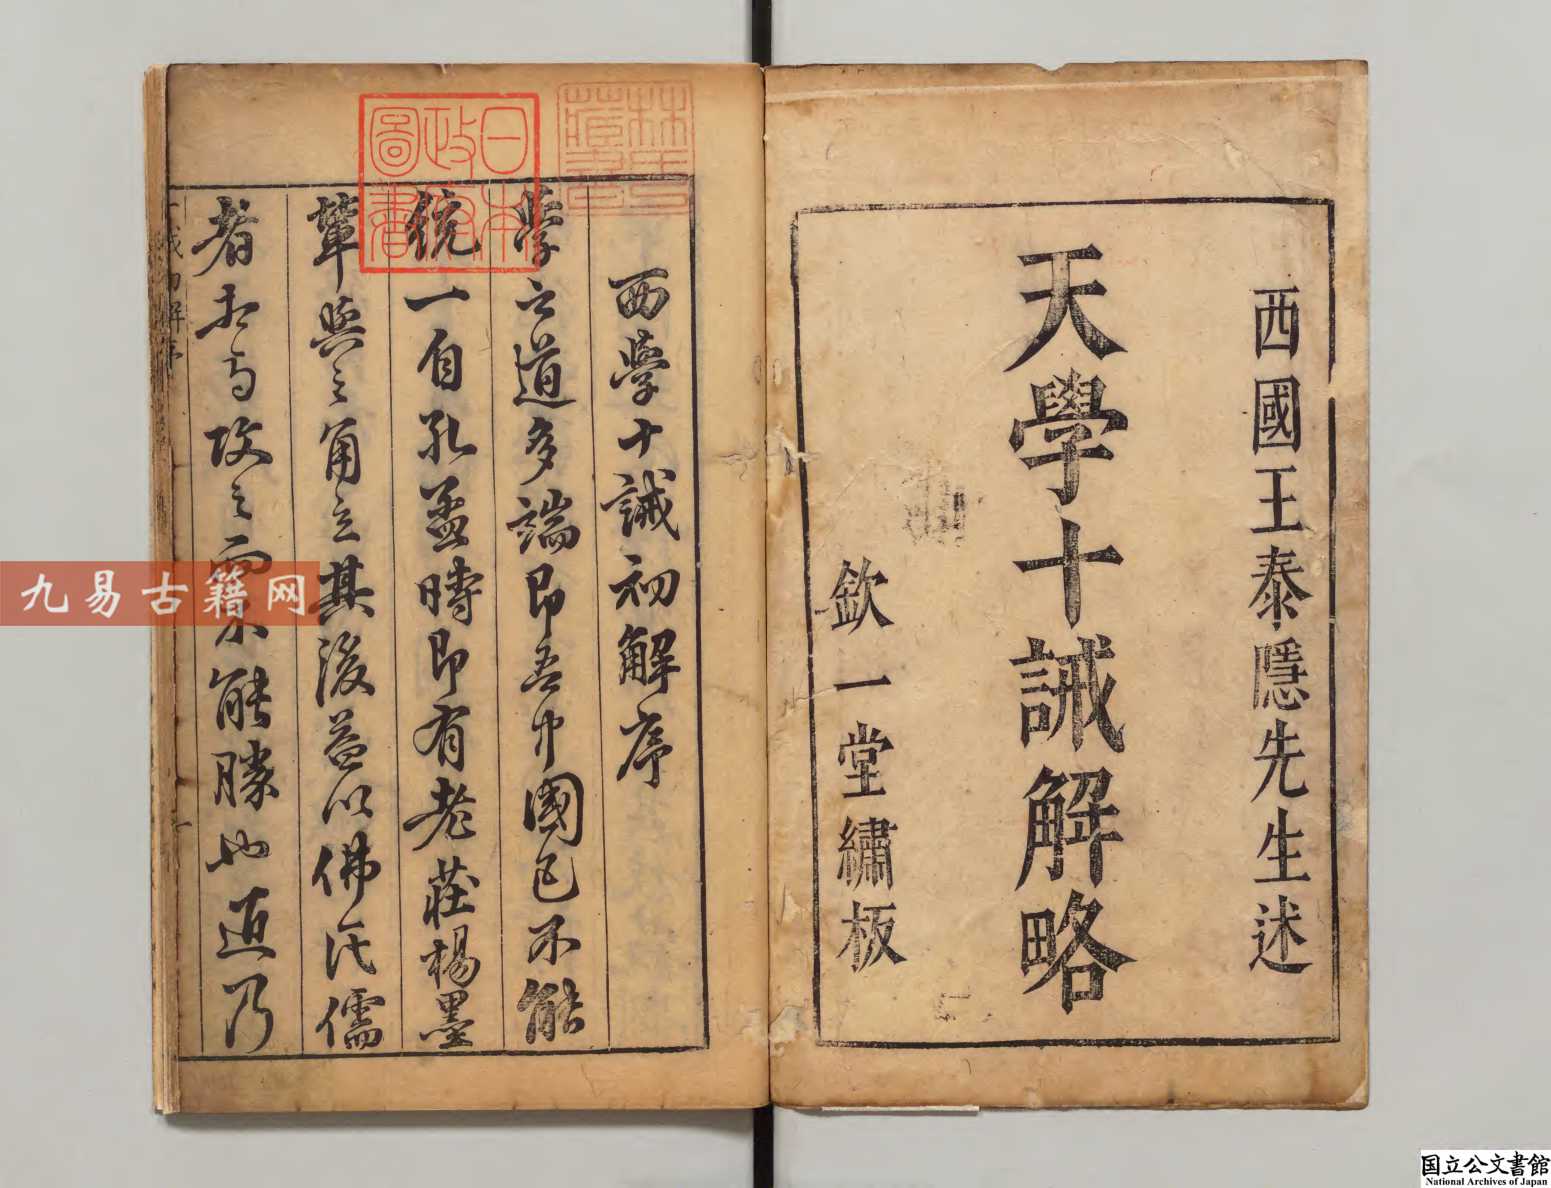 西國王泰隱先生述
天學十誡解略
欽一堂繡板
西學十誡初解序
學之道多端即吾中國已不能
統一自孔孟時即有老莊楊墨
輩與之角立其後益以佛氏儒
者起而攻之 不能勝也迺乃
日本
政府
圖書
林氏
藏書
九易古籍网
国立公文書館
National Archives of Japan